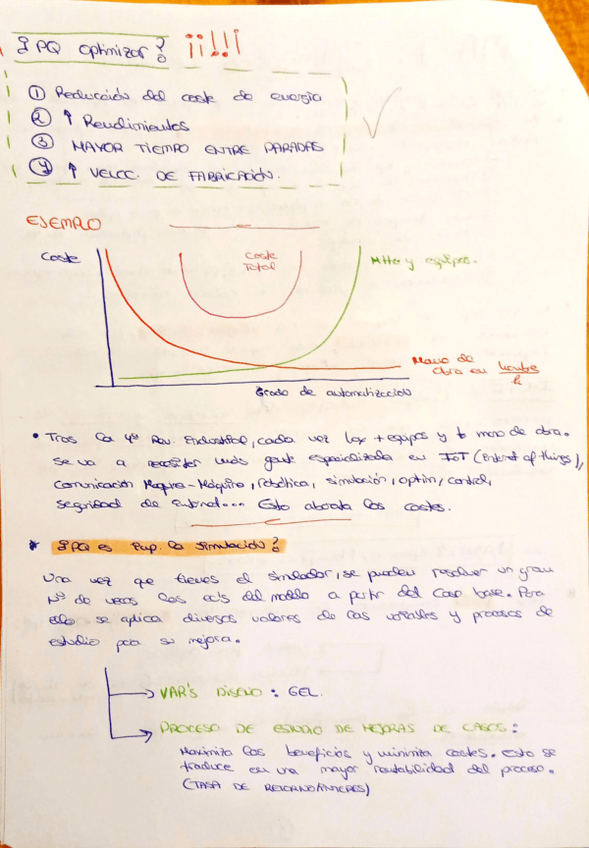 ¿PQ optimizar? ¡¡!!!
① Reducción del coste de energía
② ↑ Rendimientos
③ MAYOR TIEMPO ENTRE PARADAS
④ ↑ VELOC. DE FABRICACIÓN.
EJEMPLO
Coste
Coste
Total
Mtto y equipos.
Mano de
obra en hombre
h
Grado de automatización
• Tras la 4ª Rev. Industrial, cada vez hay + equipos y ↓ mano de obra.
Se va a necesitar más gente especializada en IoT (Internet of things),
comunicación Máquina-Máquina, robótica, simulación, optim, control,
seguridad de internet... Esto abarata los costes.
* ¿PQ es imp. la simulación?
Una vez que tienes el simulador, se pueden resolver un gran
Nº de veces las ec's del modelo a partir del caso base. Para
ello se aplica diversos valores de las variables y procesos de
estudio para su mejora.
→ VAR'S DISEÑO : GEL.
→ PROCESO DE ESTUDIO DE MEJORAS DE CASOS :
Maximiza los beneficios y minimiza costes. Esto se
traduce en una mayor rentabilidad del proceso.
(TASA DE RETORNO/INTERES)